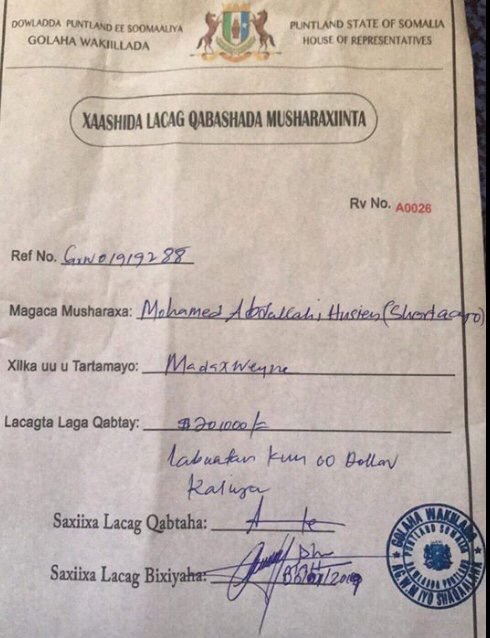 DOWLADDA PUNTLAND EE SOOMAALIYA
GOLAHA WAKIILLADA
PUNTLAND STATE OF SOMALIA
HOUSE OF REPRESENTATIVES
XAASHIDA LACAG QABASHADA MUSHARAXIINTA
Rv No. A0026
Ref No. GWN01919288
Magaca Musharaxa: Mohamed Abdullahi Husien (Shortacaro)
Xilka uu u Tartamayo: Madaxweyne
Lacagta Laga Qabtay: $20,000/=
labaatan kun oo Dollar
Kaliya
Saxiixa Lacag Qabtaha:
Saxiixa Lacag Bixiyaha:
GOLAHA WAKIILADA
PUNTLAND SOMALIA